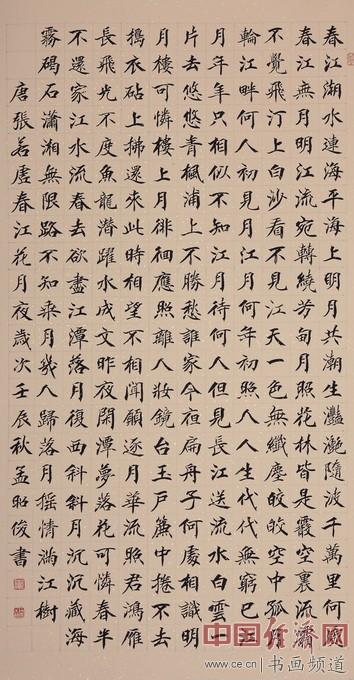 春江潮水連海平海上明月共潮生灩灩隨波千萬里何處
春江無月明江流宛轉繞芳甸月照花林皆是霰空裏流霜
不覺飛汀上白沙看不見江天一色無纖塵皎皎空中孤月
輪江畔何人初見月江月何年初照人人生代代無窮已江
月年年只相似不知江月待何人但見長江送流水白雲一
片去悠悠青楓浦上不勝愁誰家今夜扁舟子何處相識明
月樓可憐樓上月徘徊應照離人妝鏡台玉戶簾中捲不去
搗衣砧上拂還來此時相望不相聞願逐月華流照君鴻雁
長飛光不度魚龍潛躍水成文昨夜閑潭夢落花可憐春半
不還家江水流春去欲盡江潭落月復西斜斜月沉沉藏海
霧碣石瀟湘無限路不知乘月幾人歸落月搖情滿江樹
唐張若虛春江花月夜歲次壬辰秋孟昭俊書
中国经济网
www.ce.cn 书画频道